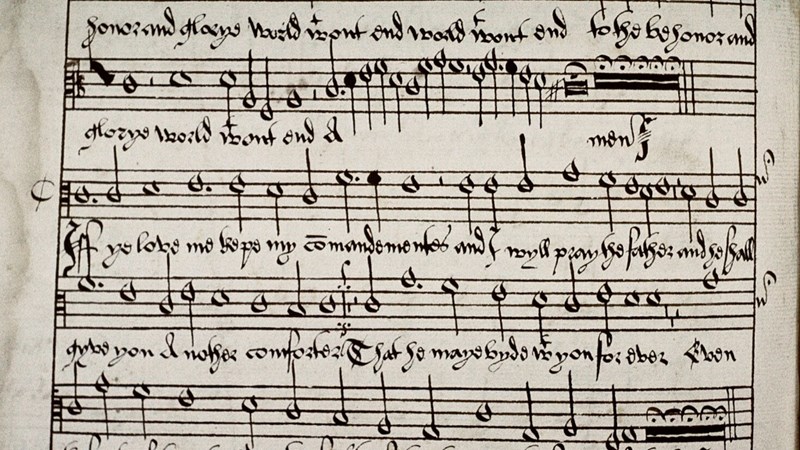 honor and glorye world wᵗ owt end world wᵗ owt end to the be honor and
glorye world wᵗ owt end A men
If ye love me kepe my cōmandementes and I wyll pray the father and he shall
gyve you A nother comforter That he maye byde wᵗ you for ever Even